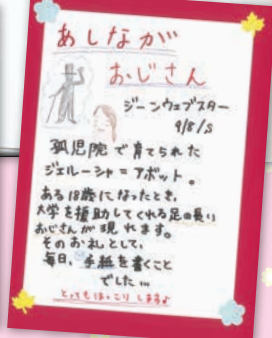 あしなが
おじさん
ジーンウェブスター
孤児院で育てられた
ジェルーシャ=アボット。
ある18歳になったとき、
大学を援助してくれる足の長い
おじさんが現れます。
そのお礼として、
毎日、手紙を書くこと
でした…
とってもほっこりします♪